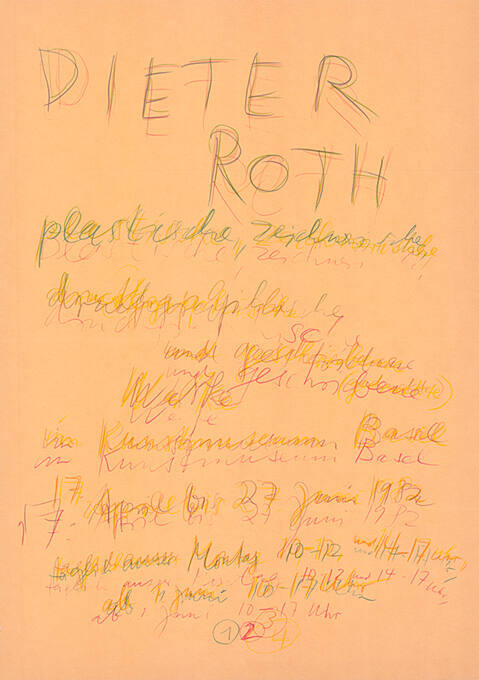 DIETER
ROTH
plastische, zeichnerische,
druckgraphische
und geschriebene
Werke
im Kunstmuseum Basel
17. April bis 27 Juni 1982
täglich ausser Montag 10-12 und 14-17 Uhr,
ab 1, Juni 10-17 Uhr
1 2 3 4